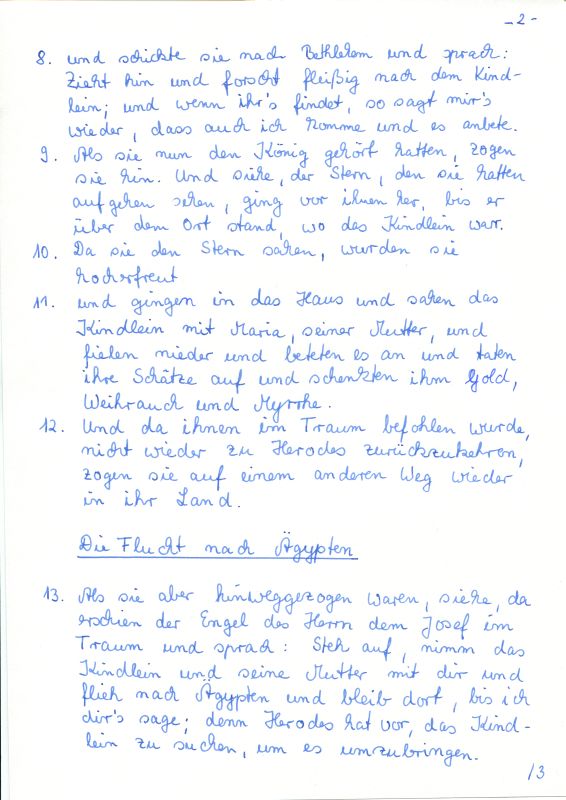 - 2 -
8. und schickte sie nach Bethlehem und sprach:
Zieht hin und forscht fleißig nach dem Kind-
lein; und wenn ihr's findet, so sagt mir's
wieder, dass auch ich komme und es anbete.
9. Als sie nun den König gehört hatten, zogen
sie hin. Und siehe, der Stern, den sie hatten
aufgehen sehen, ging vor ihnen her, bis er
über dem Ort stand, wo das Kindlein war.
10. Da sie den Stern sahen, wurden sie
hocherfreut
11. und gingen in das Haus und sahen das
Kindlein mit Maria, seiner Mutter, und
fielen nieder und beteten es an und taten
ihre Schätze auf und schenkten ihm Gold,
Weihrauch und Myrrhe.
12. Und da ihnen im Traum befohlen wurde,
nicht wieder zu Herodes zurückzukehren,
zogen sie auf einem anderen Weg wieder
in ihr Land.
Die Flucht nach Ägypten
13. Als sie aber hinweggezogen waren, siehe, da
erschien der Engel des Herrn dem Josef im
Traum und sprach: Steh auf, nimm das
Kindlein und seine Mutter mit dir und
flieh nach Ägypten und bleib dort, bis ich
dir's sage; denn Herodes hat vor, das Kind-
lein zu suchen, um es umzubringen.
/3